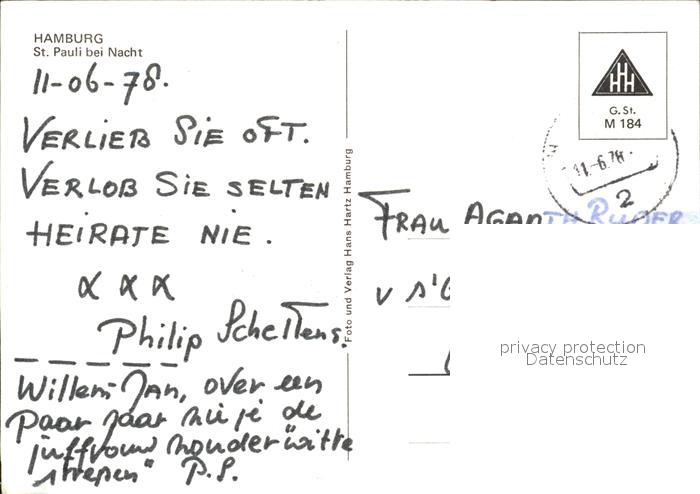 HAMBURG
St. Pauli bei Nacht
11-06-78.
VERLIEB SIE OFT.
VERLOB SIE SELTEN
HEIRATE NIE.
x x x
Philip Schellens.
Willem-Jan, over een
paar jaar zie je de
juffrouw zonder "witte
strepen" P.S.
Foto und Verlag Hans Hartz Hamburg
HHH
G. St.
M 184
11.-6.78.
2
FRAU
privacy protection
Datenschutz